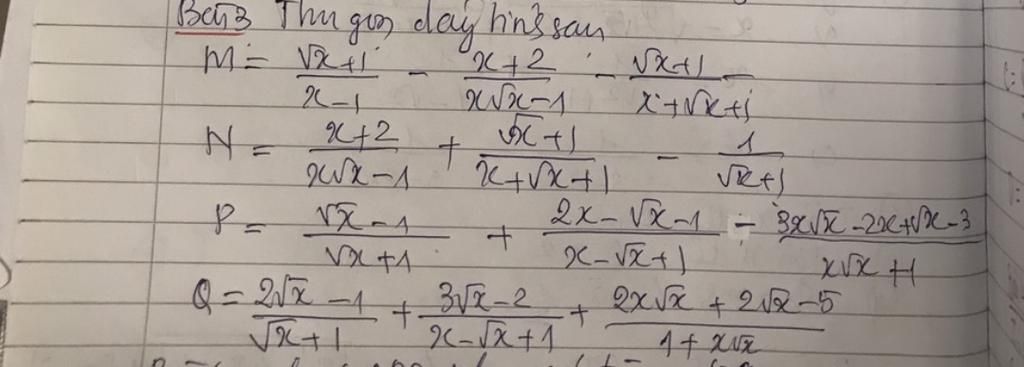 Bài 3 Thu gọn
M = \frac{\sqrt{x}+1}{x-1} - \frac{x+2}{x\sqrt{x}-1} - \frac{\sqrt{x}+1}{x+\sqrt{x}+1}
N = \frac{x+2}{x\sqrt{x}-1} + \frac{\sqrt{x}+1}{x+\sqrt{x}+1} - \frac{1}{\sqrt{x}+1}
P = \frac{\sqrt{x}-1}{\sqrt{x}+1} + \frac{2x-\sqrt{x}-1}{x-\sqrt{x}+1} - \frac{3x\sqrt{x}-2x+\sqrt{x}-3}{x\sqrt{x}+1}
Q = \frac{2\sqrt{x}-1}{\sqrt{x}+1} + \frac{3\sqrt{x}-2}{x-\sqrt{x}+1} + \frac{2x\sqrt{x}+2\sqrt{x}-5}{1+x\sqrt{x}}